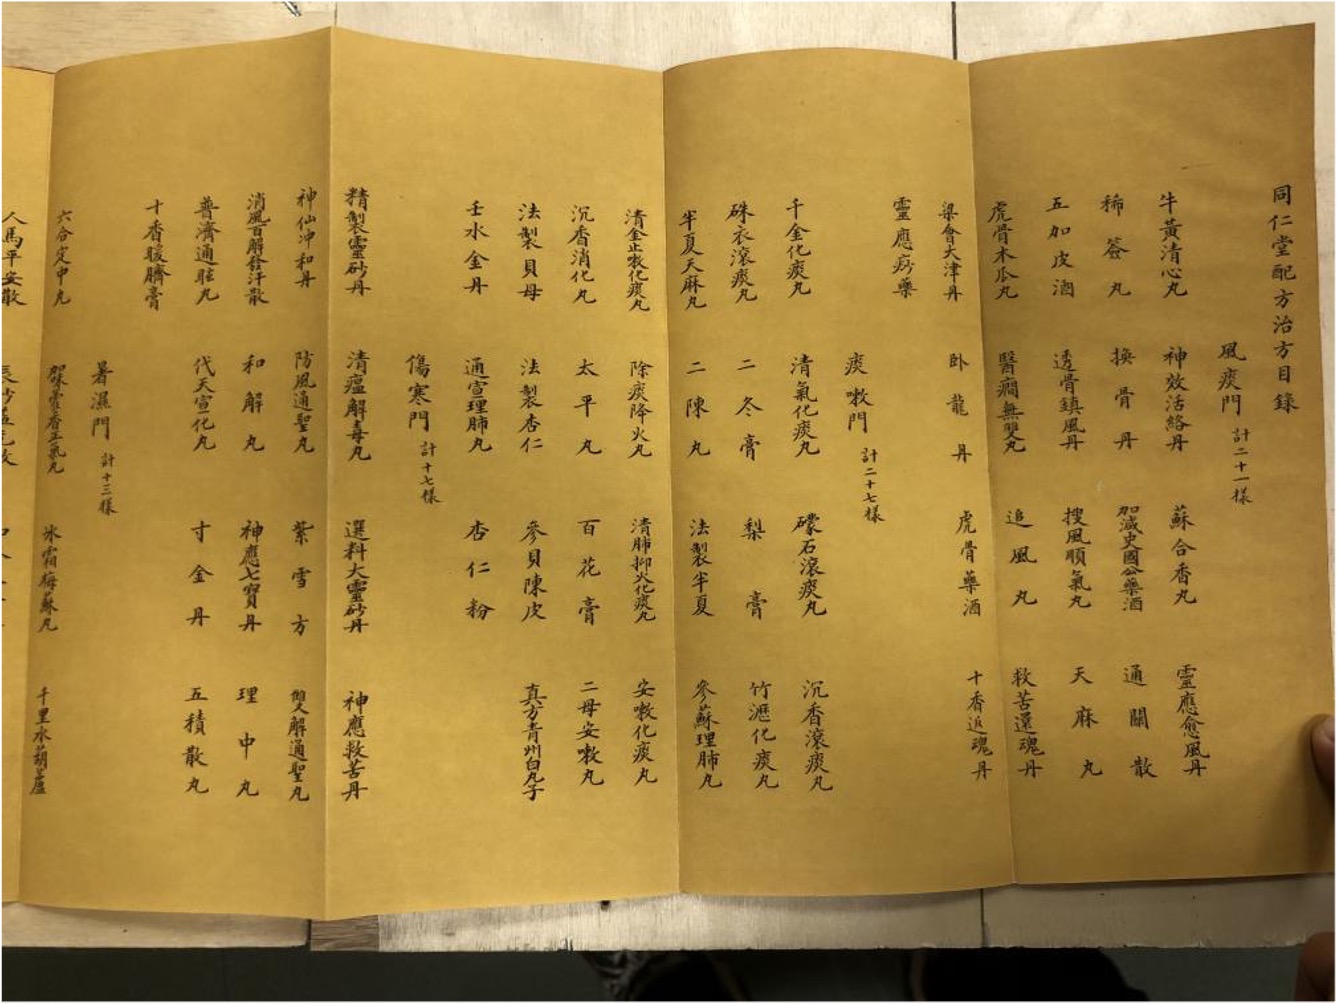 同仁堂配方治方目錄
風痰門 計二十一樣
牛黃清心丸 神效活絡丹 蘇合香丸 靈應愈風丹
稀簽丸 換骨丹 加減史國公藥酒 通關散
五加皮酒 透骨鎮風丹 搜風順氣丸 天麻丸
虎骨木瓜丸 醫癇無雙丸 追風丸 救苦還魂丹
梁會大津丹 卧龍丹 虎骨藥酒 十香返魂丹
靈應痧藥
痰嗽門 計二十七樣
千金化痰丸 清氣化痰丸 礞石滾痰丸 沉香滾痰丸
硃衣滾痰丸 二冬膏 梨膏 竹瀝化痰丸
半夏天麻丸 二陳丸 法製半夏 參蘇理肺丸
清金止嗽化痰丸 除痰降火丸 清肺抑火化痰丸 安嗽化痰丸
沉香消化丸 太平丸 百花膏 二母安嗽丸
法製貝母 法製杏仁 參貝陳皮 真方青州白丸子
壬水金丹 通宣理肺丸 杏仁粉
傷寒門 計十七樣
精製靈砂丹 清瘟解毒丸 選料大靈砂丹 神應救苦丹
神仙冲和丹 防風通聖丸 紫雪方 雙解通聖丸
消風百解發汗散 和解丸 神應七寶丹 理中丸
普濟通眩丸 代天宣化丸 寸金丹 五積散丸
十香暖臍膏
暑濕門 計十三樣
六合定中丸 加味藿香正氣丸 冰霜梅蘇丸 千里水葫蘆
人馬平安散